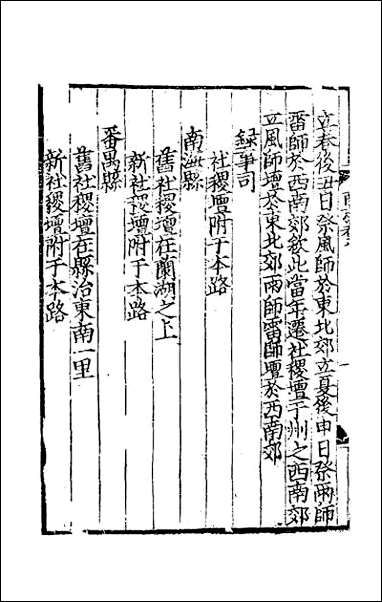 立春後丑日祭風師於東北郊立夏後申日祭雨師
雷師於西南郊欽此當年遷社稷壇于州之西南郊
立風師壇於東北郊雨師雷師壇於西南郊
録事司
社稷壇附于本路
南海縣
舊社稷壇在蘭湖之上
新社稷壇附于本路
番禺縣
舊社稷壇在縣治東南一里
新社稷壇附于本路